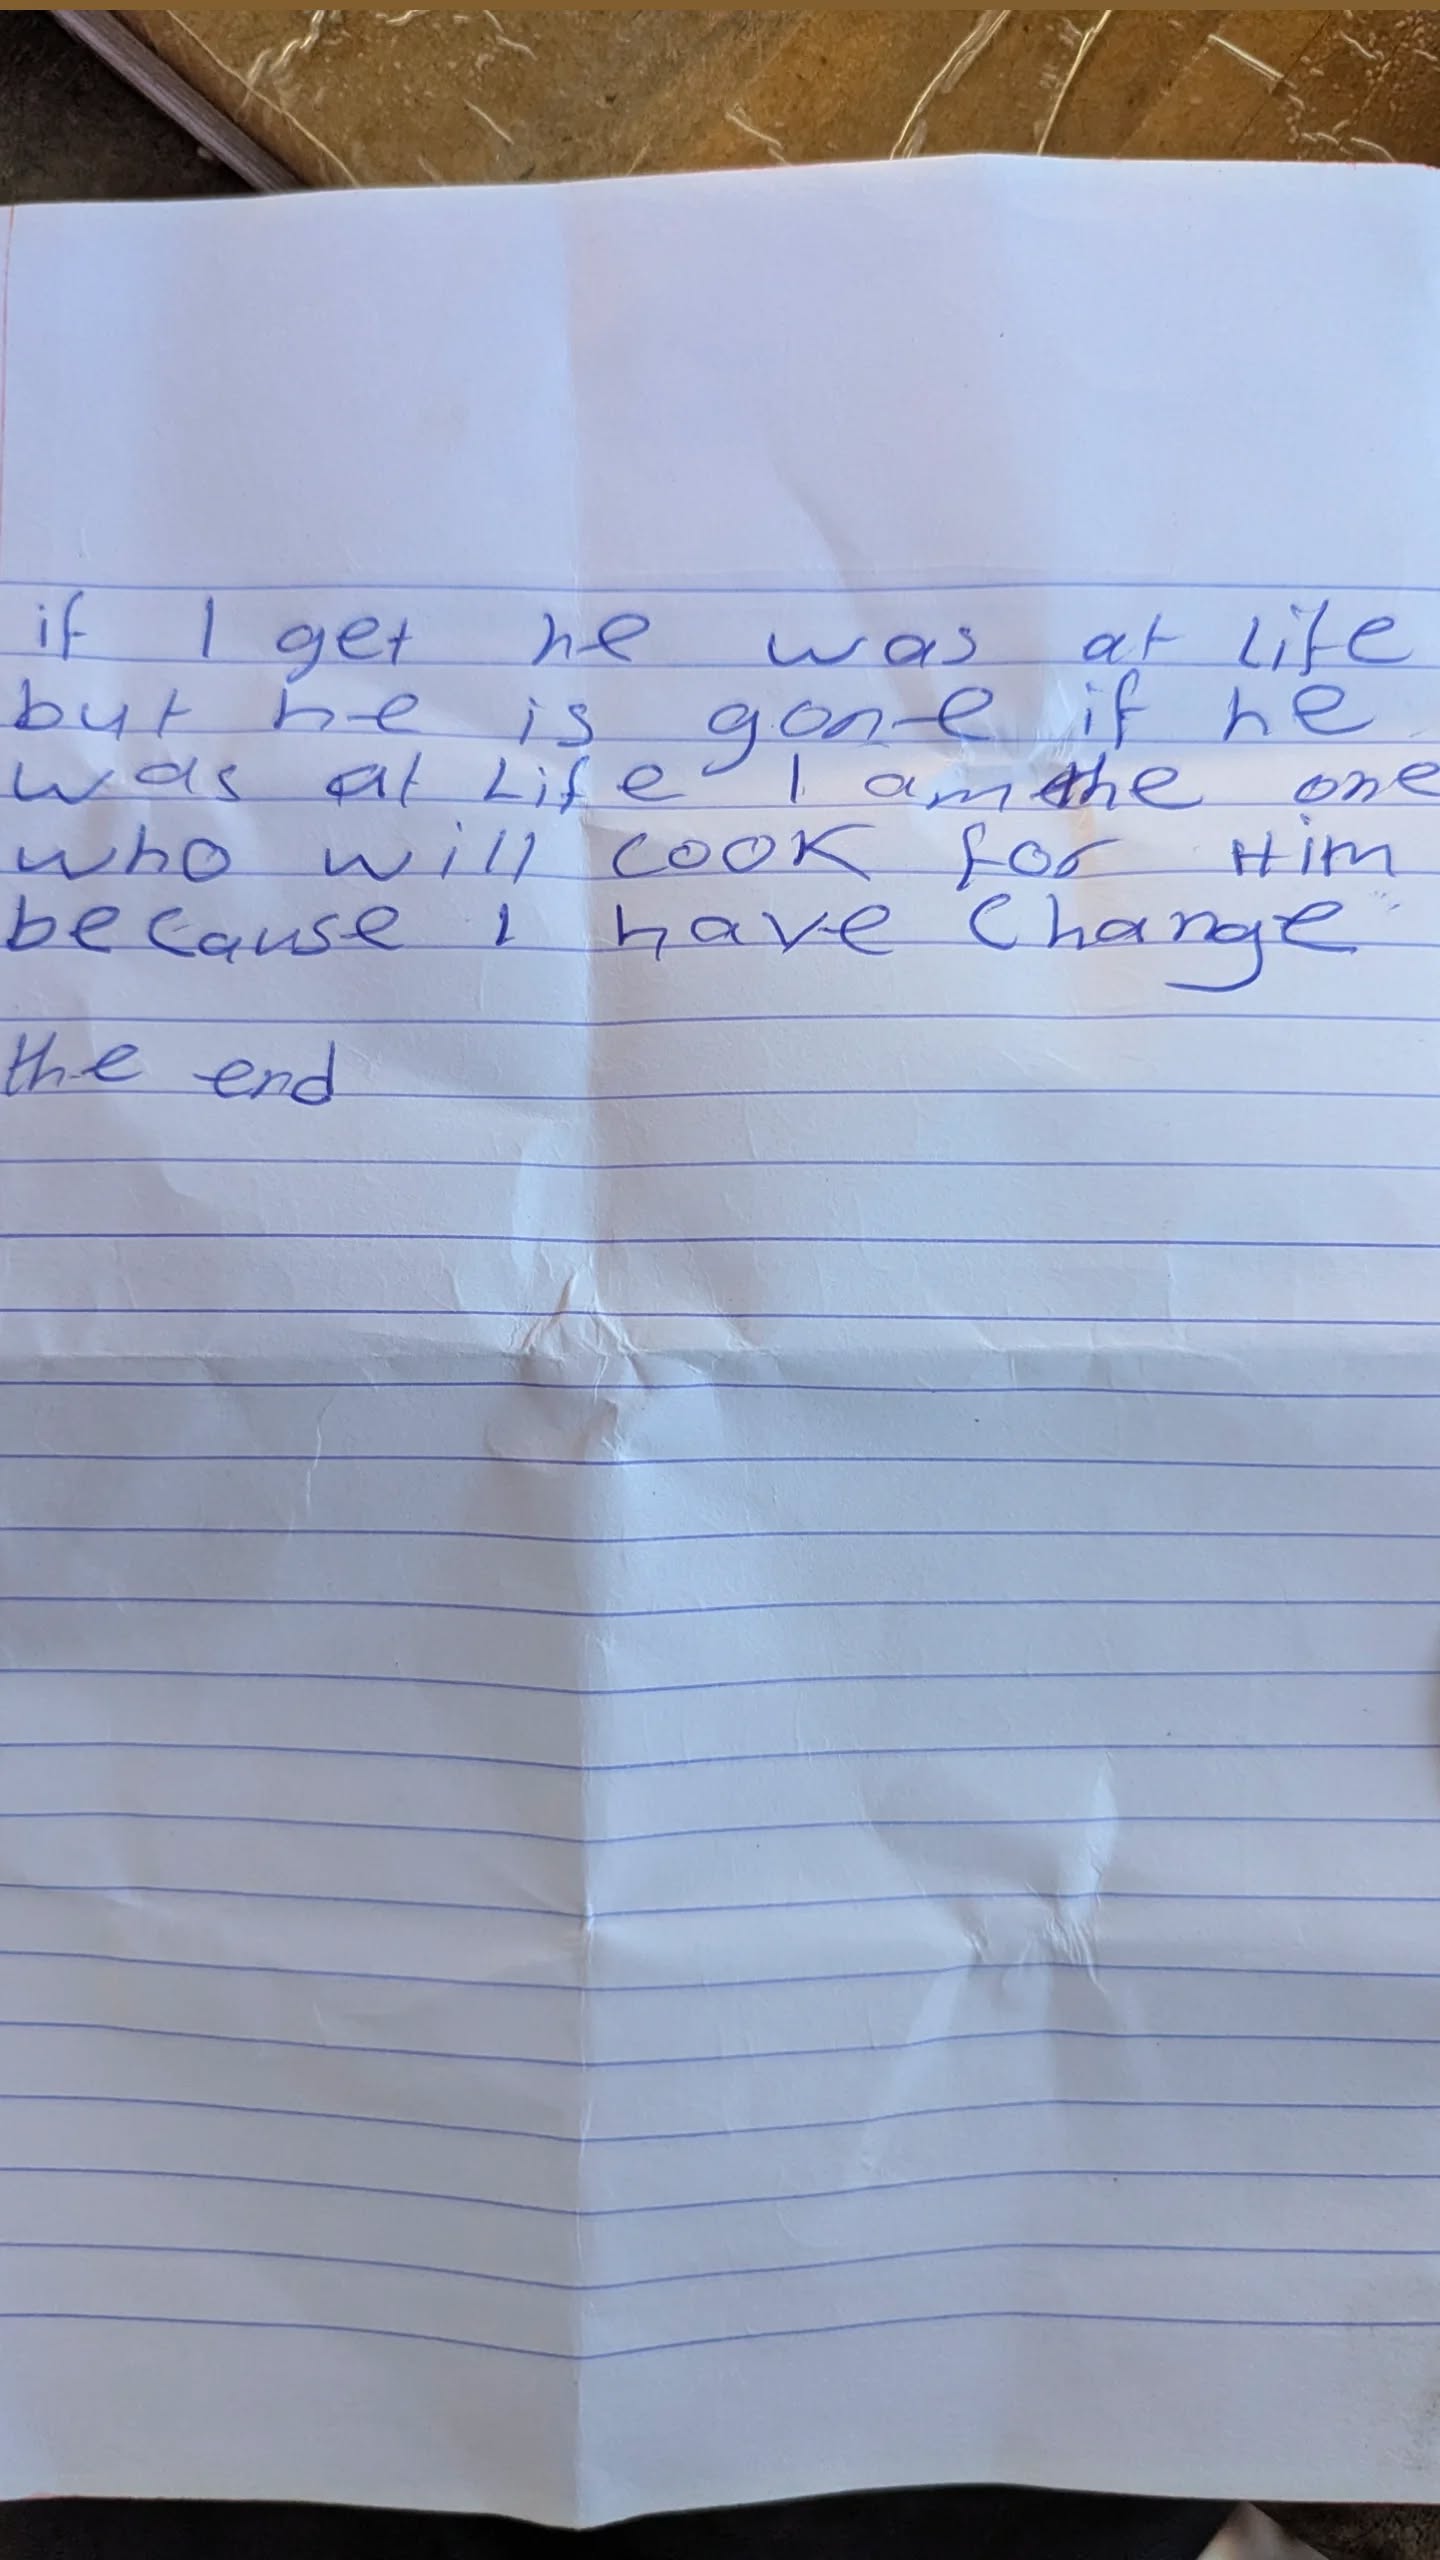 if I get he was at Life
but he is gone if he
was at Life I am the one
who will cook for Him
because I have Change
the end